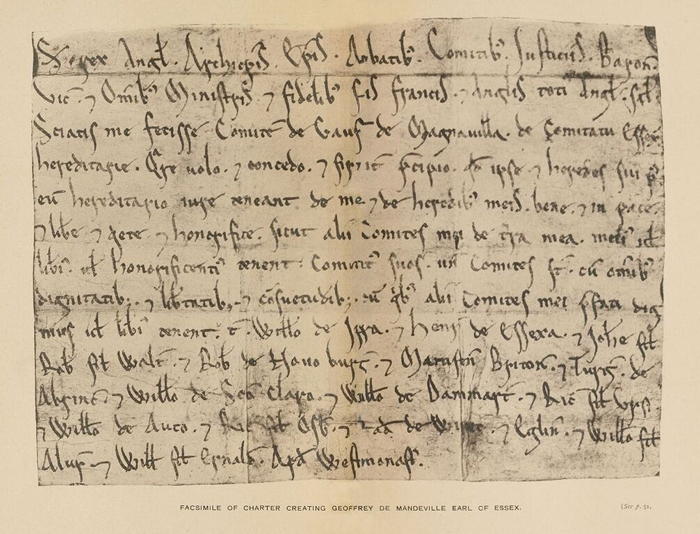 S. rex Angl. Archiepis. Epis. Abbatib'. Comitib'. Justiciis. Baron.
Vic. ⁊ Omib' Ministris ⁊ fidelib' suis francis. ⁊ Anglis toti Angl. sal.
Sciatis me fecisse Comite de Gauf de Magnauilla. de Comitatu Essex
hereditarie. Qre uolo. ⁊ concedo. ⁊ firmit pcipio. qd ipse ⁊ heredes sui p
eu hereditario iure teneant de me ⁊ de heredib' meis. bene. ⁊ in pace
⁊ libe ⁊ qete ⁊ honorifice. sicut alii Comites mei de tra mea. meli' ul
libi'. ul honorificenti' tenent Comitat' suos. un Comites st. cu omib'
dignitatib; ⁊ libtatib; ⁊ csuetudib; cu qb' alii Comites mei pfati dig
nius ul libi' tenent. t. Willo de Ipra. ⁊ Henr de Essexa. ⁊ Johe fil
Rob fil Walt. ⁊ Rob de Nouo burg. ⁊ Matheo ⁊ Turg. de
Abrinc. ⁊ Willo de Sco Claro. ⁊ Willo de Dammart. ⁊ Ric fil Vrsi.
⁊ Willo de Auco. ⁊ Ric fil Osb. ⁊ de ⁊ Eglin. ⁊ Willo fil
Alur. ⁊ Will fil Ernald. Apd Westmonast.
FACSIMILE OF CHARTER CREATING GEOFFREY DE MANDEVILLE EARL OF ESSEX.
[See p. 51.